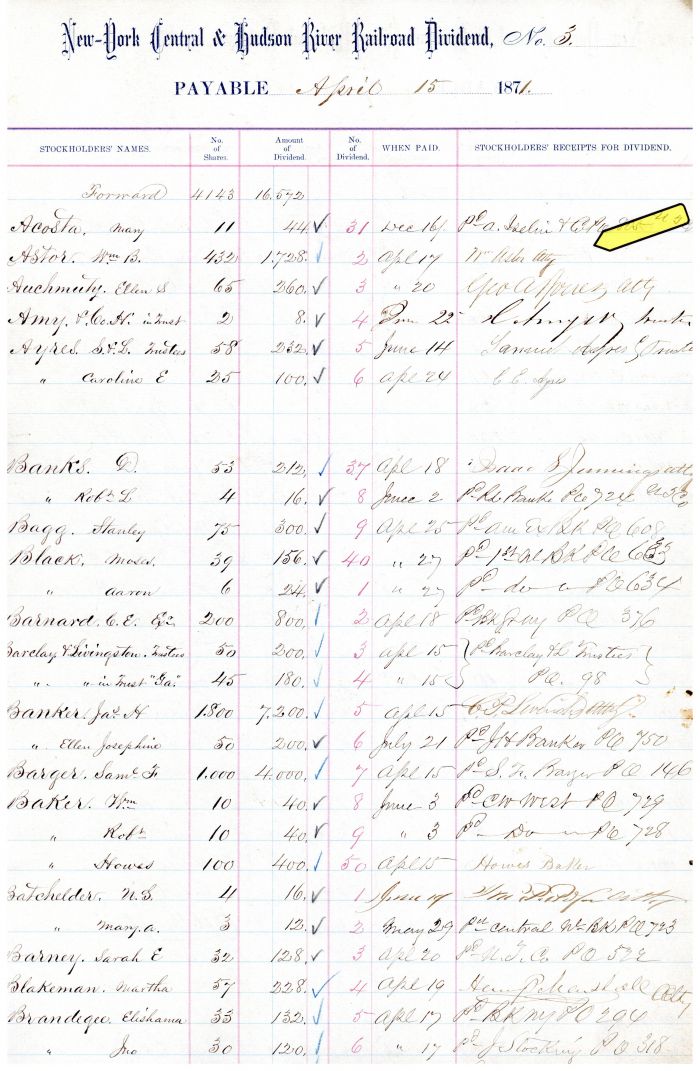 New-York Central & Hudson River Railroad Dividend, No. 3.
PAYABLE April 15 1871.
STOCKHOLDERS' NAMES. No. of Shares. Amount of Dividend. No. of Dividend. WHEN PAID. STOCKHOLDERS' RECEIPTS FOR DIVIDEND.
Forward 4143 16.572
Acosta, Mary 11 44. 31 Dec 16 Pd A. Iselin & Co
Astor. Wm B. 432 1.728. 2 Apl 17 Wm Astor Atty
Auchmuty. Ellen S 65 260. 3 " 20 Atty
Amy, & C.H. in Trust 2 8. 4 22 H Amy Trustee
Ayres S & L Trustees 58 232. 5 June 14 Samuel Ayres Trustee
" Caroline E 25 100. 6 Apl 24 C E Ayres
Banks. D. 53 212. 37 Apl 18 Isaac S Jennings atty
" Robt L 4 16. 8 June 2 Pd R L Banks PO 724
Bagg. Stanley 75 300. 9 Apl 25 Pd Am Ex Bk PO 608
Black. Moses. 39 156. 40 " 27 Pd 1st Bk PO 633
" Aaron 6 24. 1 " 27 Pd do PO 634
Barnard. C. E. Ex. 200 800. 2 Apl 18 Pd PO 376
Barclay & Livingston. Trustees 50 200. 3 Apl 15 Pd Barclay & L Trustees
" " in Trust "Ga." 45 180. 4 " 15 PO. 98
Banker. Jas. H 1.800 7.200. 5 Apl 15 Atty.
" Ellen Josephine 50 200. 6 July 21 Pd J H Banker PO 750
Barger. Saml. F 1.000 4.000. 7 Apl 15 Pd S. F. Barger PO 146
Baker. Wm 10 40. 8 June 3 Pd C W West PO 729
" Robt 10 40. 9 " 3 Pd Do PO 728
" Howes 100 400. 50 Apl 15 Howes Baker
Batchelder. N.S. 4 16. 1 June 19 Atty
" Mary A. 3 12. 2 May 29 Pd Central N. Bk PO 723
Barney. Sarah E 32 128. 3 Apl 20 Pd N. T. C. PO 522
Blakeman. Martha 57 228. 4 Apl 19 Henry P. Marshall Atty
Brandegee. Elishama 33 132. 5 Apl 17 Pd Bk NY PO 294
" Jno 30 120. 6 " 17 Pd J Stocking PO 318